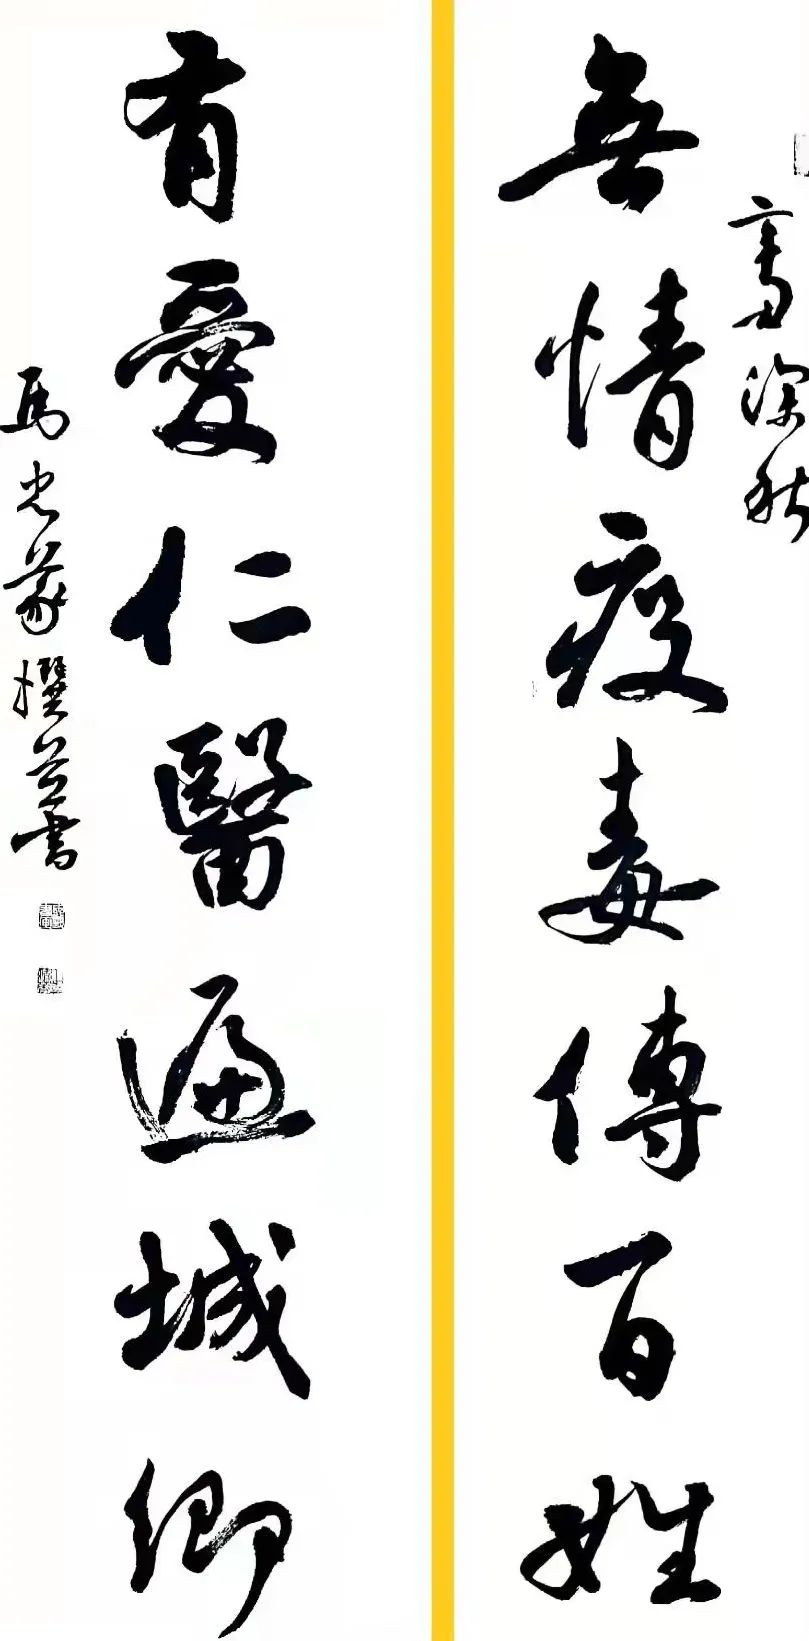 辛丑深秋
無情疫毒傳百姓
有愛仁醫遍城鄉
馬光撰並書